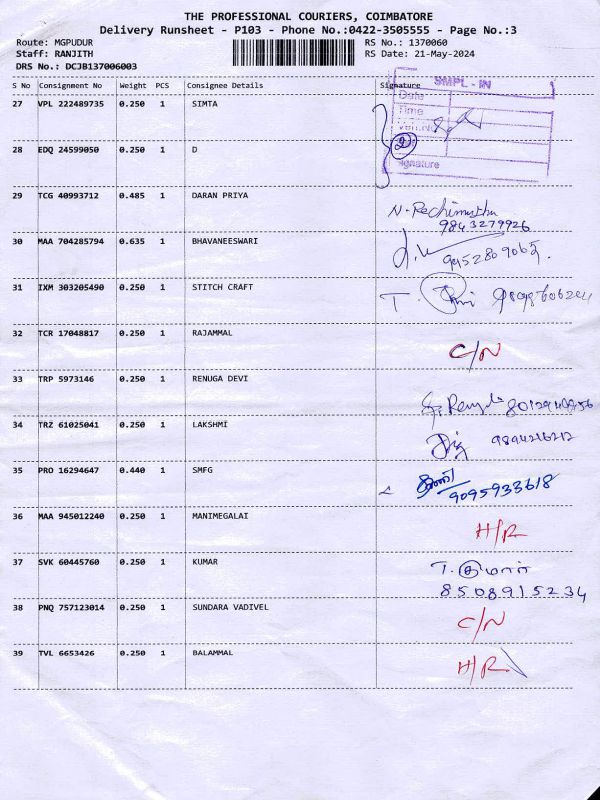 THE PROFESSIONAL COURIERS, COIMBATORE
Delivery Runsheet - P103 - Phone No.:0422-3505555 - Page No.:3
Route: MGPUDUR RS No.: 1370060
Staff: RANJITH RS Date: 21-May-2024
DRS No.: DCJB137006003
S No Consignment No Weight PCS Consignee Details Signature
SMPL - IN
Date
Time
27 VPL 222489735 0.250 1 SIMTA
28 EDQ 24599050 0.250 1 D
Signature
29 TCG 40993712 0.485 1 DARAN PRIYA
9843279926
30 MAA 704285794 0.635 1 BHAVANEESWARI
9952809065.
31 IXM 303205490 0.250 1 STITCH CRAFT T.
32 TCR 17048817 0.250 1 RAJAMMAL C/N
33 TRP 5973146 0.250 1 RENUGA DEVI
34 TRZ 61025041 0.250 1 LAKSHMI
9894216212
35 PRO 16294647 0.440 1 SMFG
9095933618
36 MAA 945012240 0.250 1 MANIMEGALAI H/R
37 SVK 60445760 0.250 1 KUMAR T. குமார்
8508915234
38 PNQ 757123014 0.250 1 SUNDARA VADIVEL C/N
39 TVL 6653426 0.250 1 BALAMMAL H/R